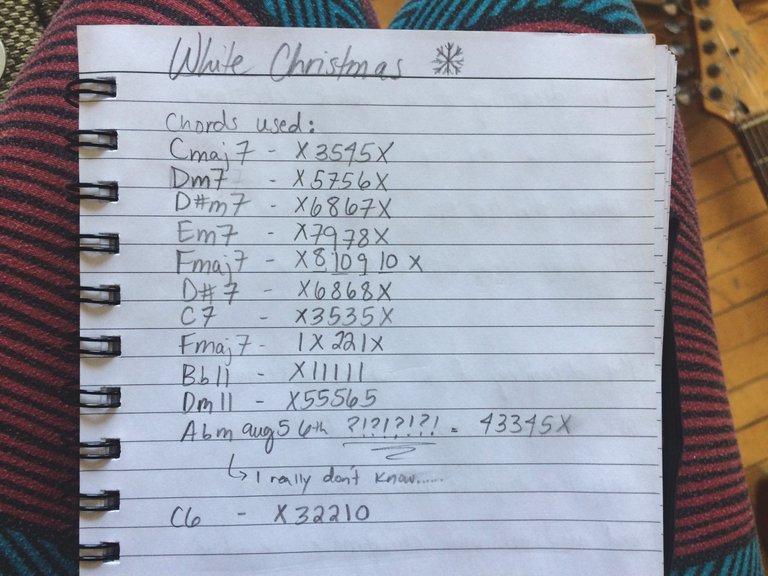 White Christmas
Chords used:
Cmaj7 - X3545X
Dm7 - X5756X
D#m7 - X6867X
Em7 - X7978X
Fmaj7 - X8 10 9 10 X
D#7 - X6868X
C7 - X3535X
Fmaj7 - 1X221X
Bb11 - X11111
Dm11 - X55565
Abm aug5 6th ?!?!?!?! = 43345X
↳ I really don't know......
C6 - X32210